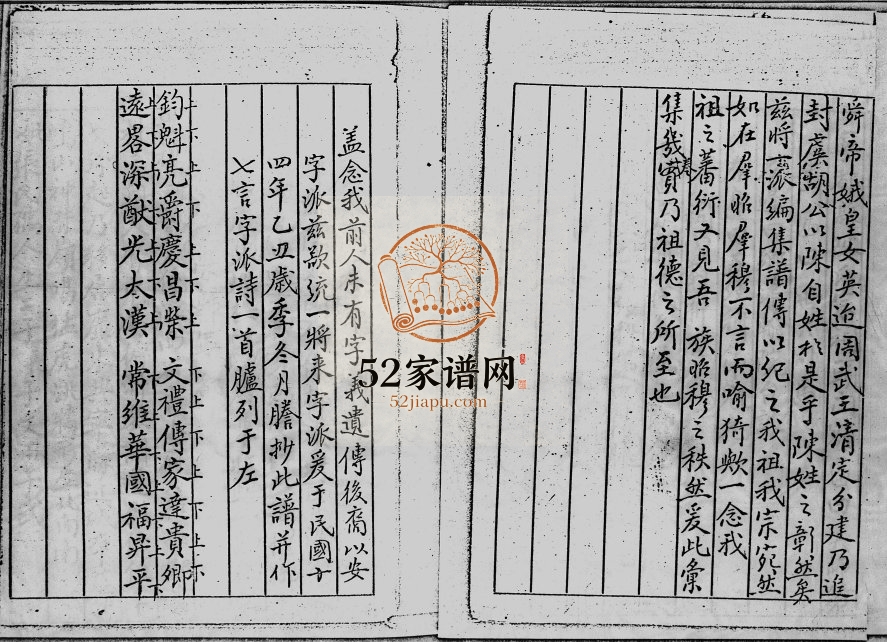 舜帝娥皇女英迨周武王清定分建乃追
封虞胡公以陳自姓於是乎陳姓之彰然矣
兹將一派編集譜傳以紀之我祖我宗宛然
如在羣昭羣穆不言而喻猗歟一念我
祖之蕃衍又見吾 族昭穆之秩然爰此彙
集幾實乃祖德之所至也
盖念我前人未有字義遺傳後裔以安
字派兹欲統一將来字派爰于民國十
四年乙丑歲季冬月謄抄此譜并作
七言字派詩一首臚列于左
上下上下上下上 下上下上下上下
鈞魁亮爵慶昌榮 文禮傳家達貴卿
遠畧深猷光大漢 常維華國福昇平
52家谱网
52jiapu.com